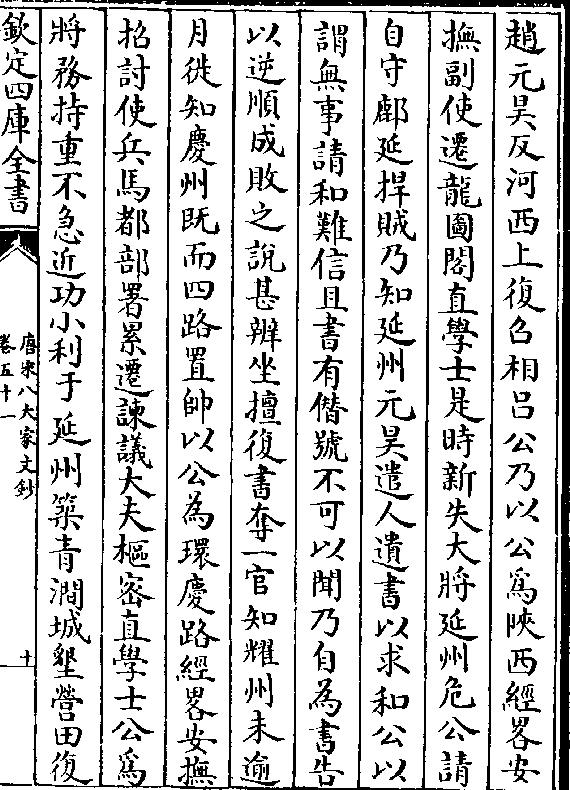 趙元昊反河西上復召相呂公乃以公爲陜西經畧安
撫副使遷龍圖閣直學士是時新失大將延州危公請
自守鄜延捍賊乃知延州元昊遣人遺書以求和公以
謂無事請和難信且書有僭號不可以聞乃自為書告
以逆順成敗之說甚辨坐擅復書奪一官知耀州未逾
月徙知慶州既而四路置帥以公為環慶路經畧安撫
招討使兵馬都部署累遷諫議大夫樞密直學士公爲
將務持重不急近功小利于延州築青澗城墾營田復
欽定四庫全書
唐宋八大家文鈔
卷五十一
十